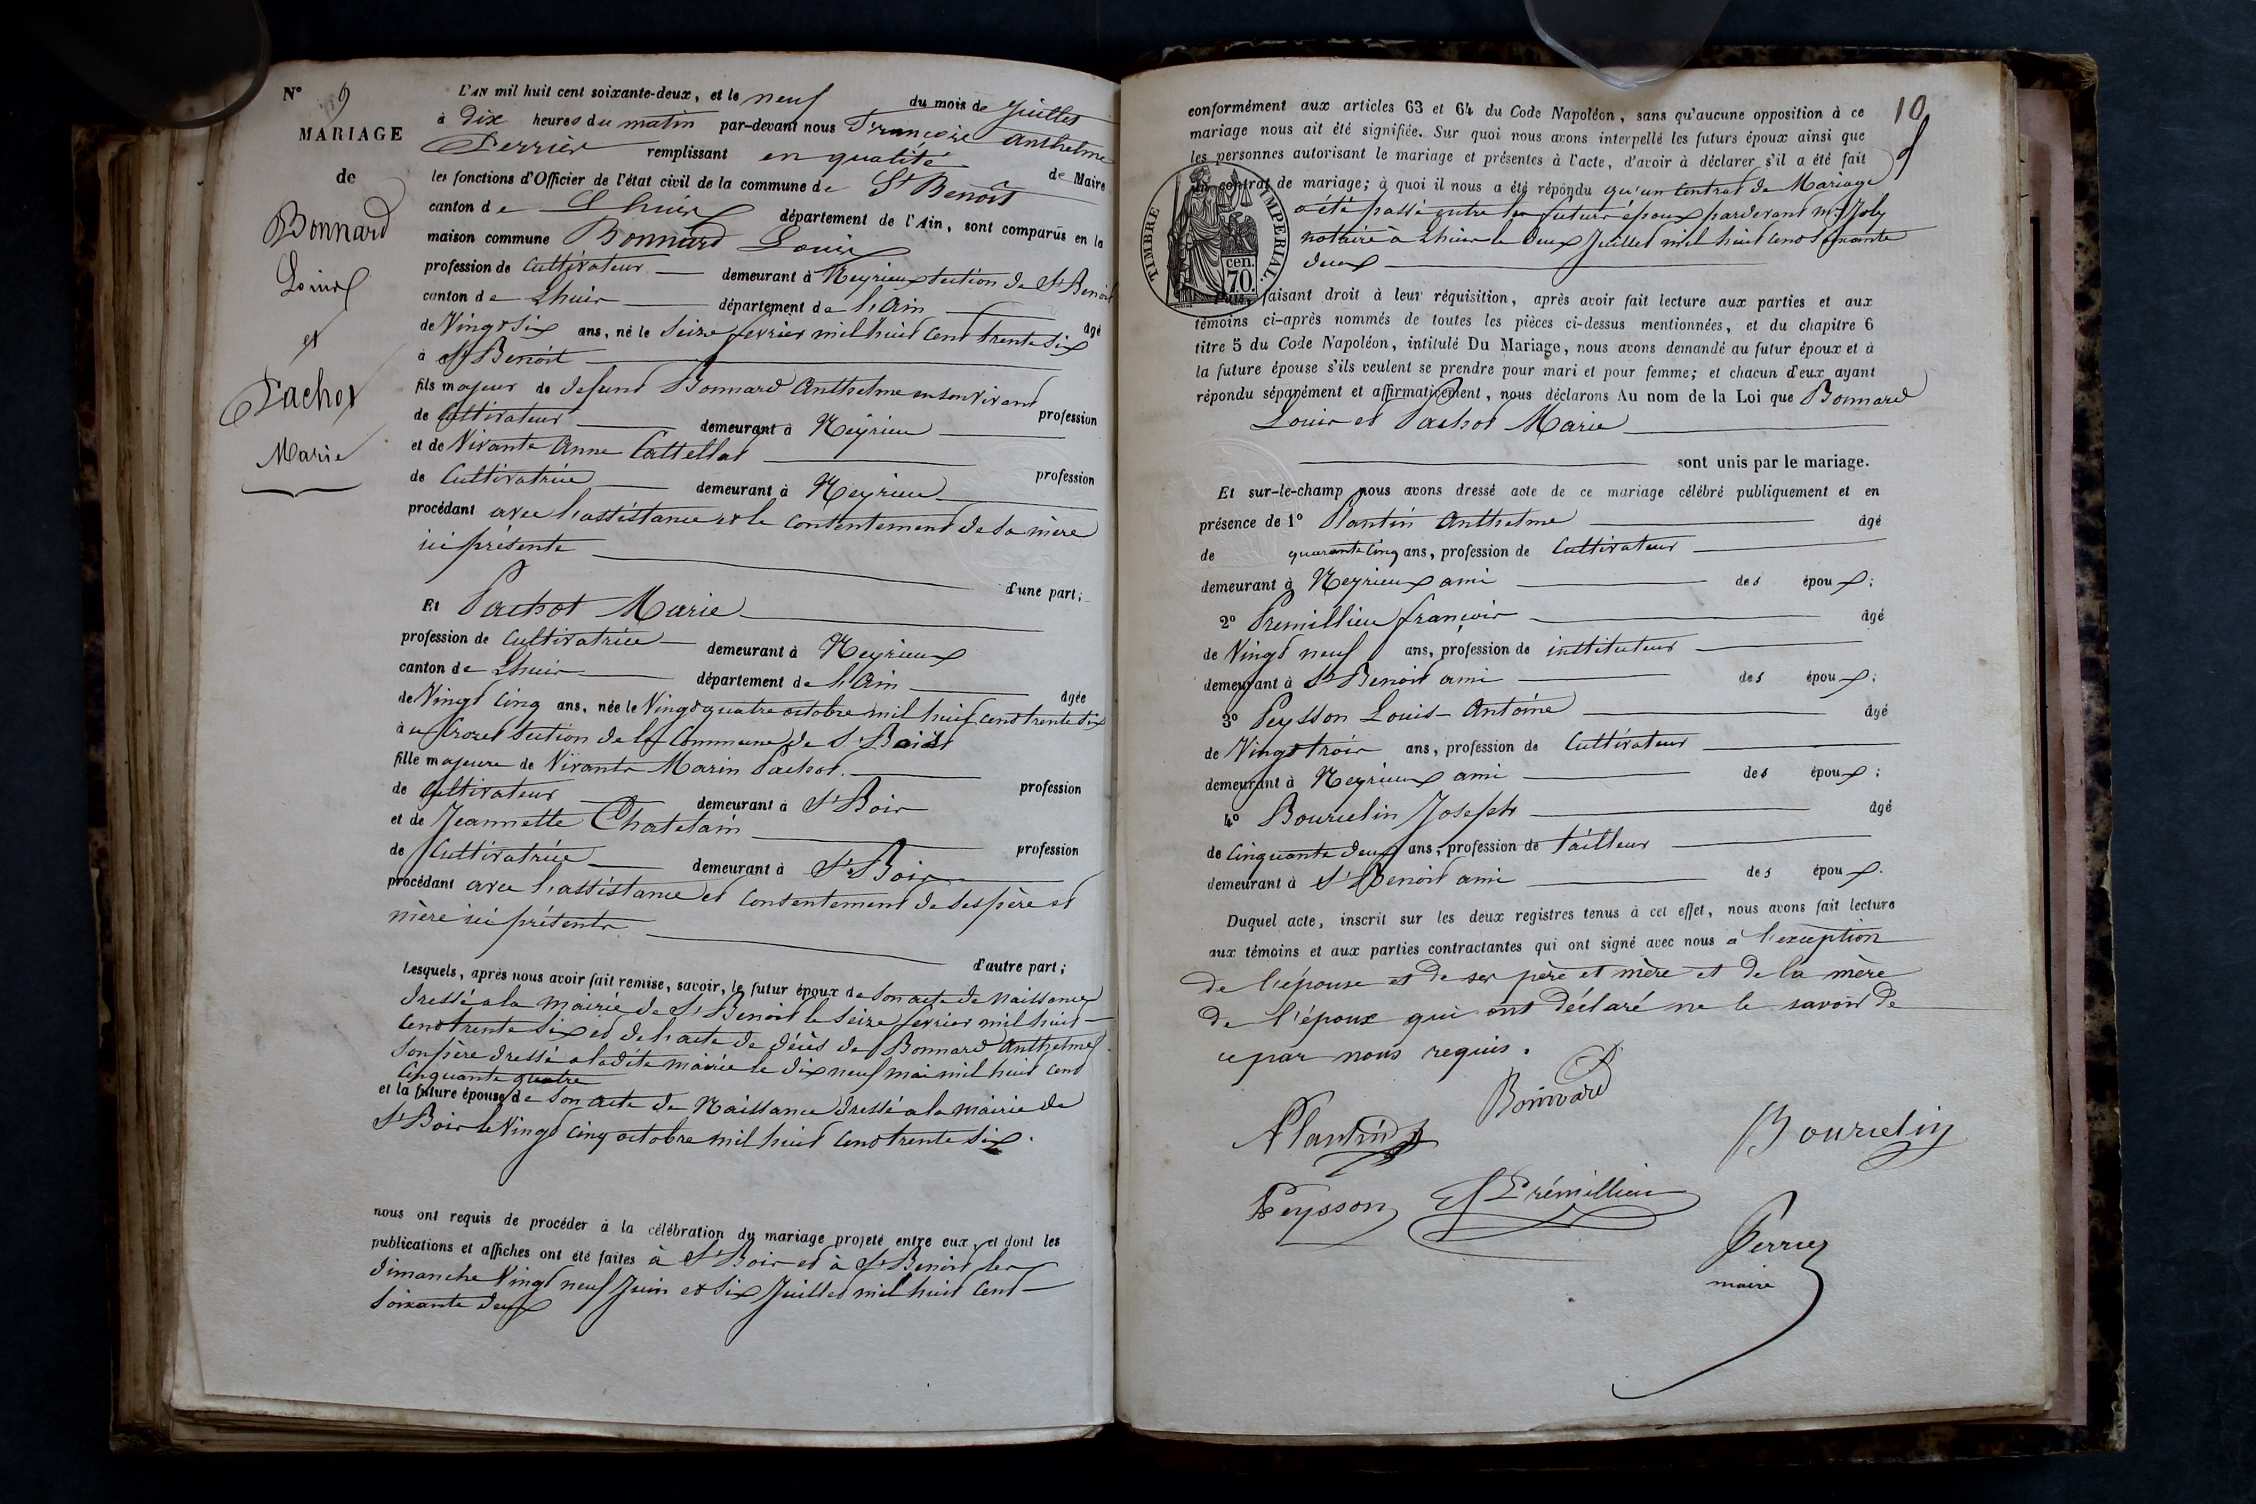 N° 9
MARIAGE
de
Bonnard
Louis
et
Pachot
Marie
L'AN mil huit cent soixante-deux, et le neuf du mois de Juillet
à dix heures du matin par-devant nous François Anthelme
Perrier remplissant en qualité de Maire
les fonctions d'Officier de l'état civil de la commune de St Benoît
canton de Lhuis département de l'Ain, sont comparus en la
maison commune Bonnard Louis
profession de Cultivateur demeurant à Neyrieux section de St Benoit
canton de Lhuis département de l'Ain âgé
de Vingt Six ans, né le Seize février mil huit cent trente six
à St Benoit
fils majeur de défunt Bonnard Anthelme en son vivant profession
de Cultivateur demeurant à Neyrieu
et de Vivante Anne Cattellat profession
de Cultivatrice demeurant à Neyrieu
procédant avec l'assistance et le consentement de sa mère
ici présente
d'une part;
Et Pachot Marie
profession de Cultivatrice demeurant à Neyrieux
canton de Lhuis département de l'Ain âgée
de Vingt cinq ans, née le Vingt quatre octobre mil huit cent trente six
à u Crozet section de la Commune de St Bois
fille majeure de Vivants Marin Pachot profession
de Cultivateur demeurant à St Bois
et de Jeannette Chatelain profession
de Cultivatrice demeurant à St Bois
procédant avec l'assistance et consentement de ses père et
mère ici présents
d'autre part;
Lesquels, après nous avoir fait remise, savoir, le futur époux de Son acte de Naissance
dressé a la Mairie de St Benoit le Seize février mil huit
cent trente six et de l'acte de décès de Bonnard Anthelme
Son père dressé a la dite mairie le dix neuf mai mil huit cent
cinquante quatre
et la future épouse de Son acte de Naissance dressé a la mairie de
St Bois le Vingt cinq octobre mil huit cent trente six.
nous ont requis de procéder à la célébration du mariage projeté entre eux, et dont les
publications et affiches ont été faites à St Bois et à St Benoit les
dimanche Vingt neuf Juin et six Juillet mil huit cent
soixante deux
10
conformément aux articles 63 et 64 du Code Napoléon, sans qu'aucune opposition à ce
mariage nous ait été signifiée. Sur quoi nous avons interpellé les futurs époux ainsi que
les personnes autorisant le mariage et présentes à l'acte, d'avoir à déclarer s'il a été fait
un contrat de mariage; à quoi il nous a été répondu qu'un Contrat de Mariage
a été passé entre les futurs époux pardevant Me Joly
notaire à Lhuis le deux Juillet mil huit cent soixante
deux
TIMBRE IMPERIAL.
70 cen.
Puis, faisant droit à leur réquisition, après avoir fait lecture aux parties et aux
témoins ci-après nommés de toutes les pièces ci-dessus mentionnées, et du chapitre 6
titre 5 du Code Napoléon, intitulé Du Mariage, nous avons demandé au futur époux et à
la future épouse s'ils veulent se prendre pour mari et pour femme; et chacun d'eux ayant
répondu séparément et affirmativement, nous déclarons Au nom de la Loi que Bonnard
Louis et Pachot Marie
sont unis par le mariage.
Et sur-le-champ nous avons dressé acte de ce mariage célébré publiquement et en
présence de 1° Plantin Anthelme âgé
de quarante cinq ans, profession de Cultivateur
demeurant à Neyrieux ami des époux;
2° Premillieu françois âgé
de Vingt neuf ans, profession de instituteur
demeurant à St Benoit ami des époux;
3° Peysson Louis-Antoine âgé
de Vingt trois ans, profession de Cultivateur
demeurant à Neyrieux ami des époux;
4° Bourcelin Joseph âgé
de Cinquante deux ans, profession de tailleur
demeurant à St Benoit ami des époux.
Duquel acte, inscrit sur les deux registres tenus à cet effet, nous avons fait lecture
aux témoins et aux parties contractantes qui ont signé avec nous à l'exception
de l'épouse et de ses père et mère et de la mère
de l'époux qui ont déclaré ne le savoir de
ce par nous requis.
Bonnard
Plantin
Bourcelin
Peysson
Prémillieu
Perrier
maire